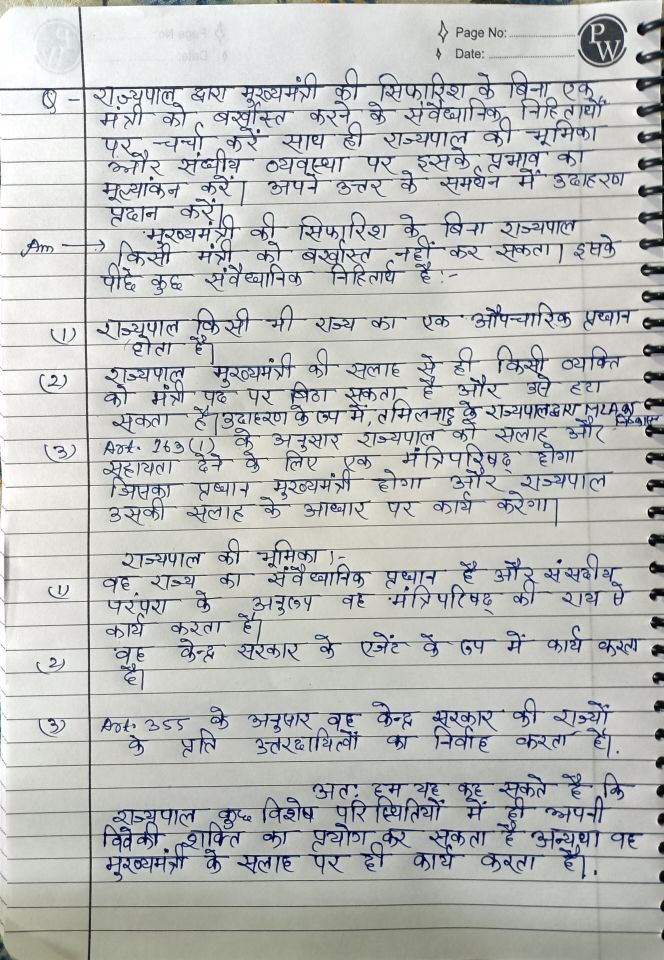 Page No:
Date:
PW
Q - राज्यपाल द्वारा मुख्यमंत्री की सिफारिश के बिना एक
मंत्री को बर्खास्त करने के संवैधानिक निहितार्थों
पर चर्चा करें साथ ही राज्यपाल की भूमिका
और संघीय व्यवस्था पर इसके प्रभाव का
मूल्यांकन करें। अपने उत्तर के समर्थन में उदाहरण
प्रदान करें।
Ans → मुख्यमंत्री की सिफारिश के बिना राज्यपाल
किसी मंत्री को बर्खास्त नहीं कर सकता। इसके
पीछे कुछ संवैधानिक निहितार्थ है:-
(1) राज्यपाल किसी भी राज्य का एक औपचारिक प्रधान
होता है।
(2) राज्यपाल मुख्यमंत्री की सलाह से ही किसी व्यक्ति
को मंत्री पद पर बिठा सकता है और उसे हटा
सकता है। उदाहरण के रूप में, तमिलनाडु के राज्यपाल द्वारा MLA का
(3) Art. 163(1) के अनुसार राज्यपाल को सलाह और
सहायता देने के लिए एक मंत्रिपरिषद् होगा
जिसका प्रधान मुख्यमंत्री होगा और राज्यपाल
उसकी सलाह के आधार पर कार्य करेगा।
राज्यपाल की भूमिका:-
(1) वह राज्य का संवैधानिक प्रधान है और संसदीय
परंपरा के अनुरूप वह मंत्रिपरिषद् की राय से
कार्य करता है।
(2) वह केन्द्र सरकार के एजेंट के रूप में कार्य करता
है।
(3) Art. 355 के अनुसार वह केन्द्र सरकार की राज्यों
के प्रति उत्तरदायित्वों का निर्वाह करता है।
अतः हम यह कह सकते है कि
राज्यपाल कुछ विशेष परिस्थितियों में ही अपनी
विवेकी शक्ति का प्रयोग कर सकता है अन्यथा वह
मुख्यमंत्री के सलाह पर ही कार्य करता है।